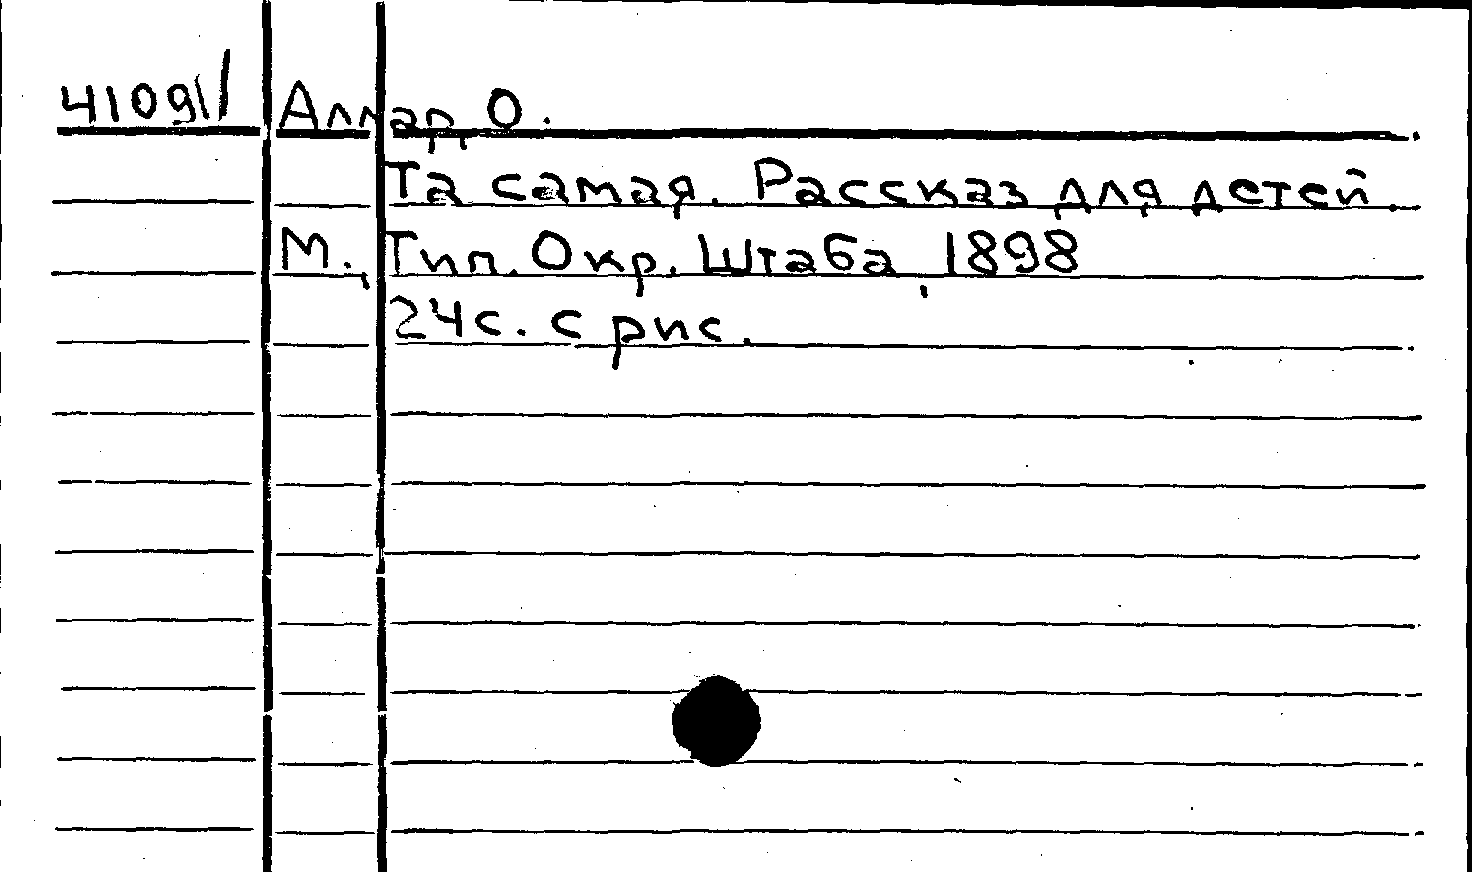 41091/ Аллар, О.
Та самая. Рассказ для детей.
М., Тип. Окр. Штаба, 1898
24с. с рис.